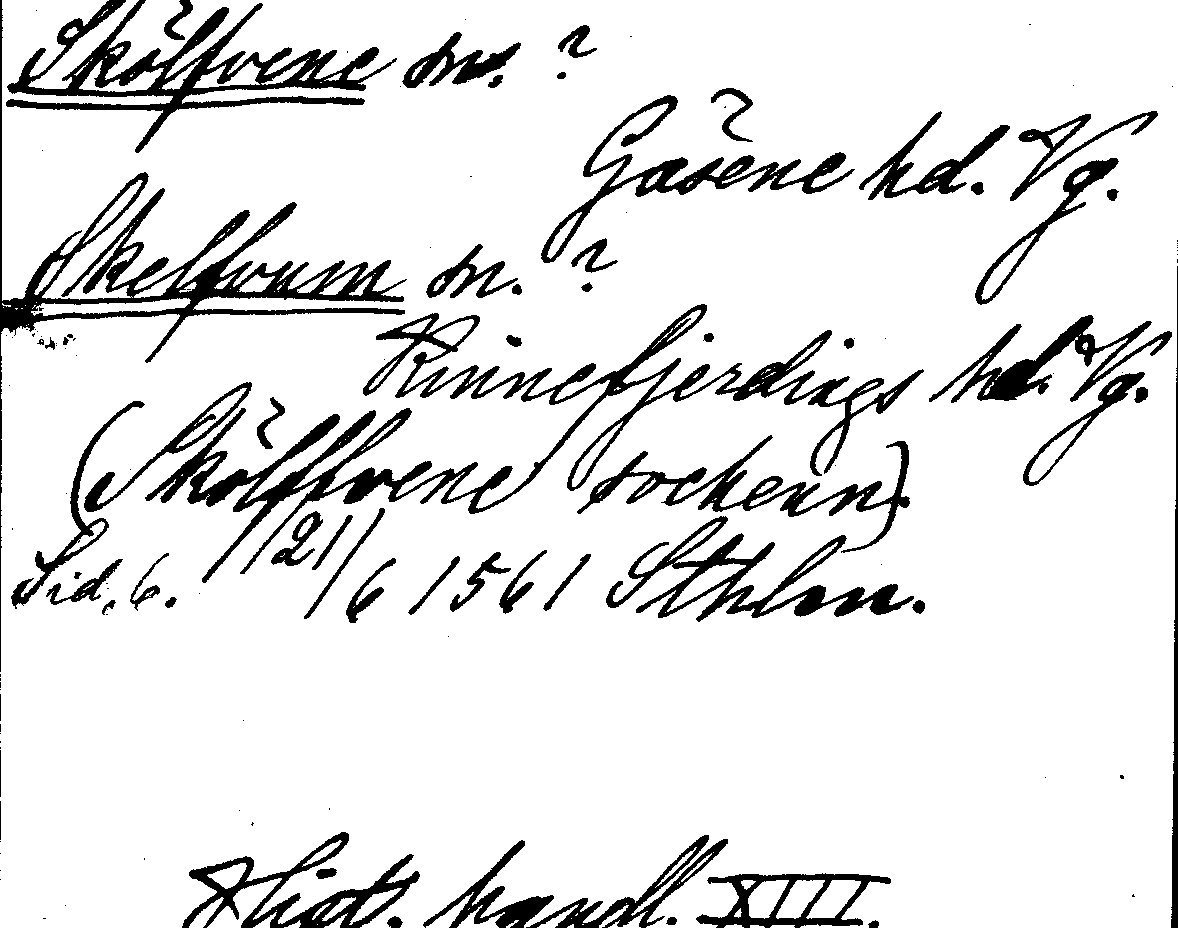 Skölfvene sn. ?
Gäsene hd. Vg.
Skelfvum sn. ?
Kinnefjerdings hd. Vg.
(Skölffvene sockenn).
Sid. 6. 21/6 1561 Sthlm.
Hist. handl. XIII.